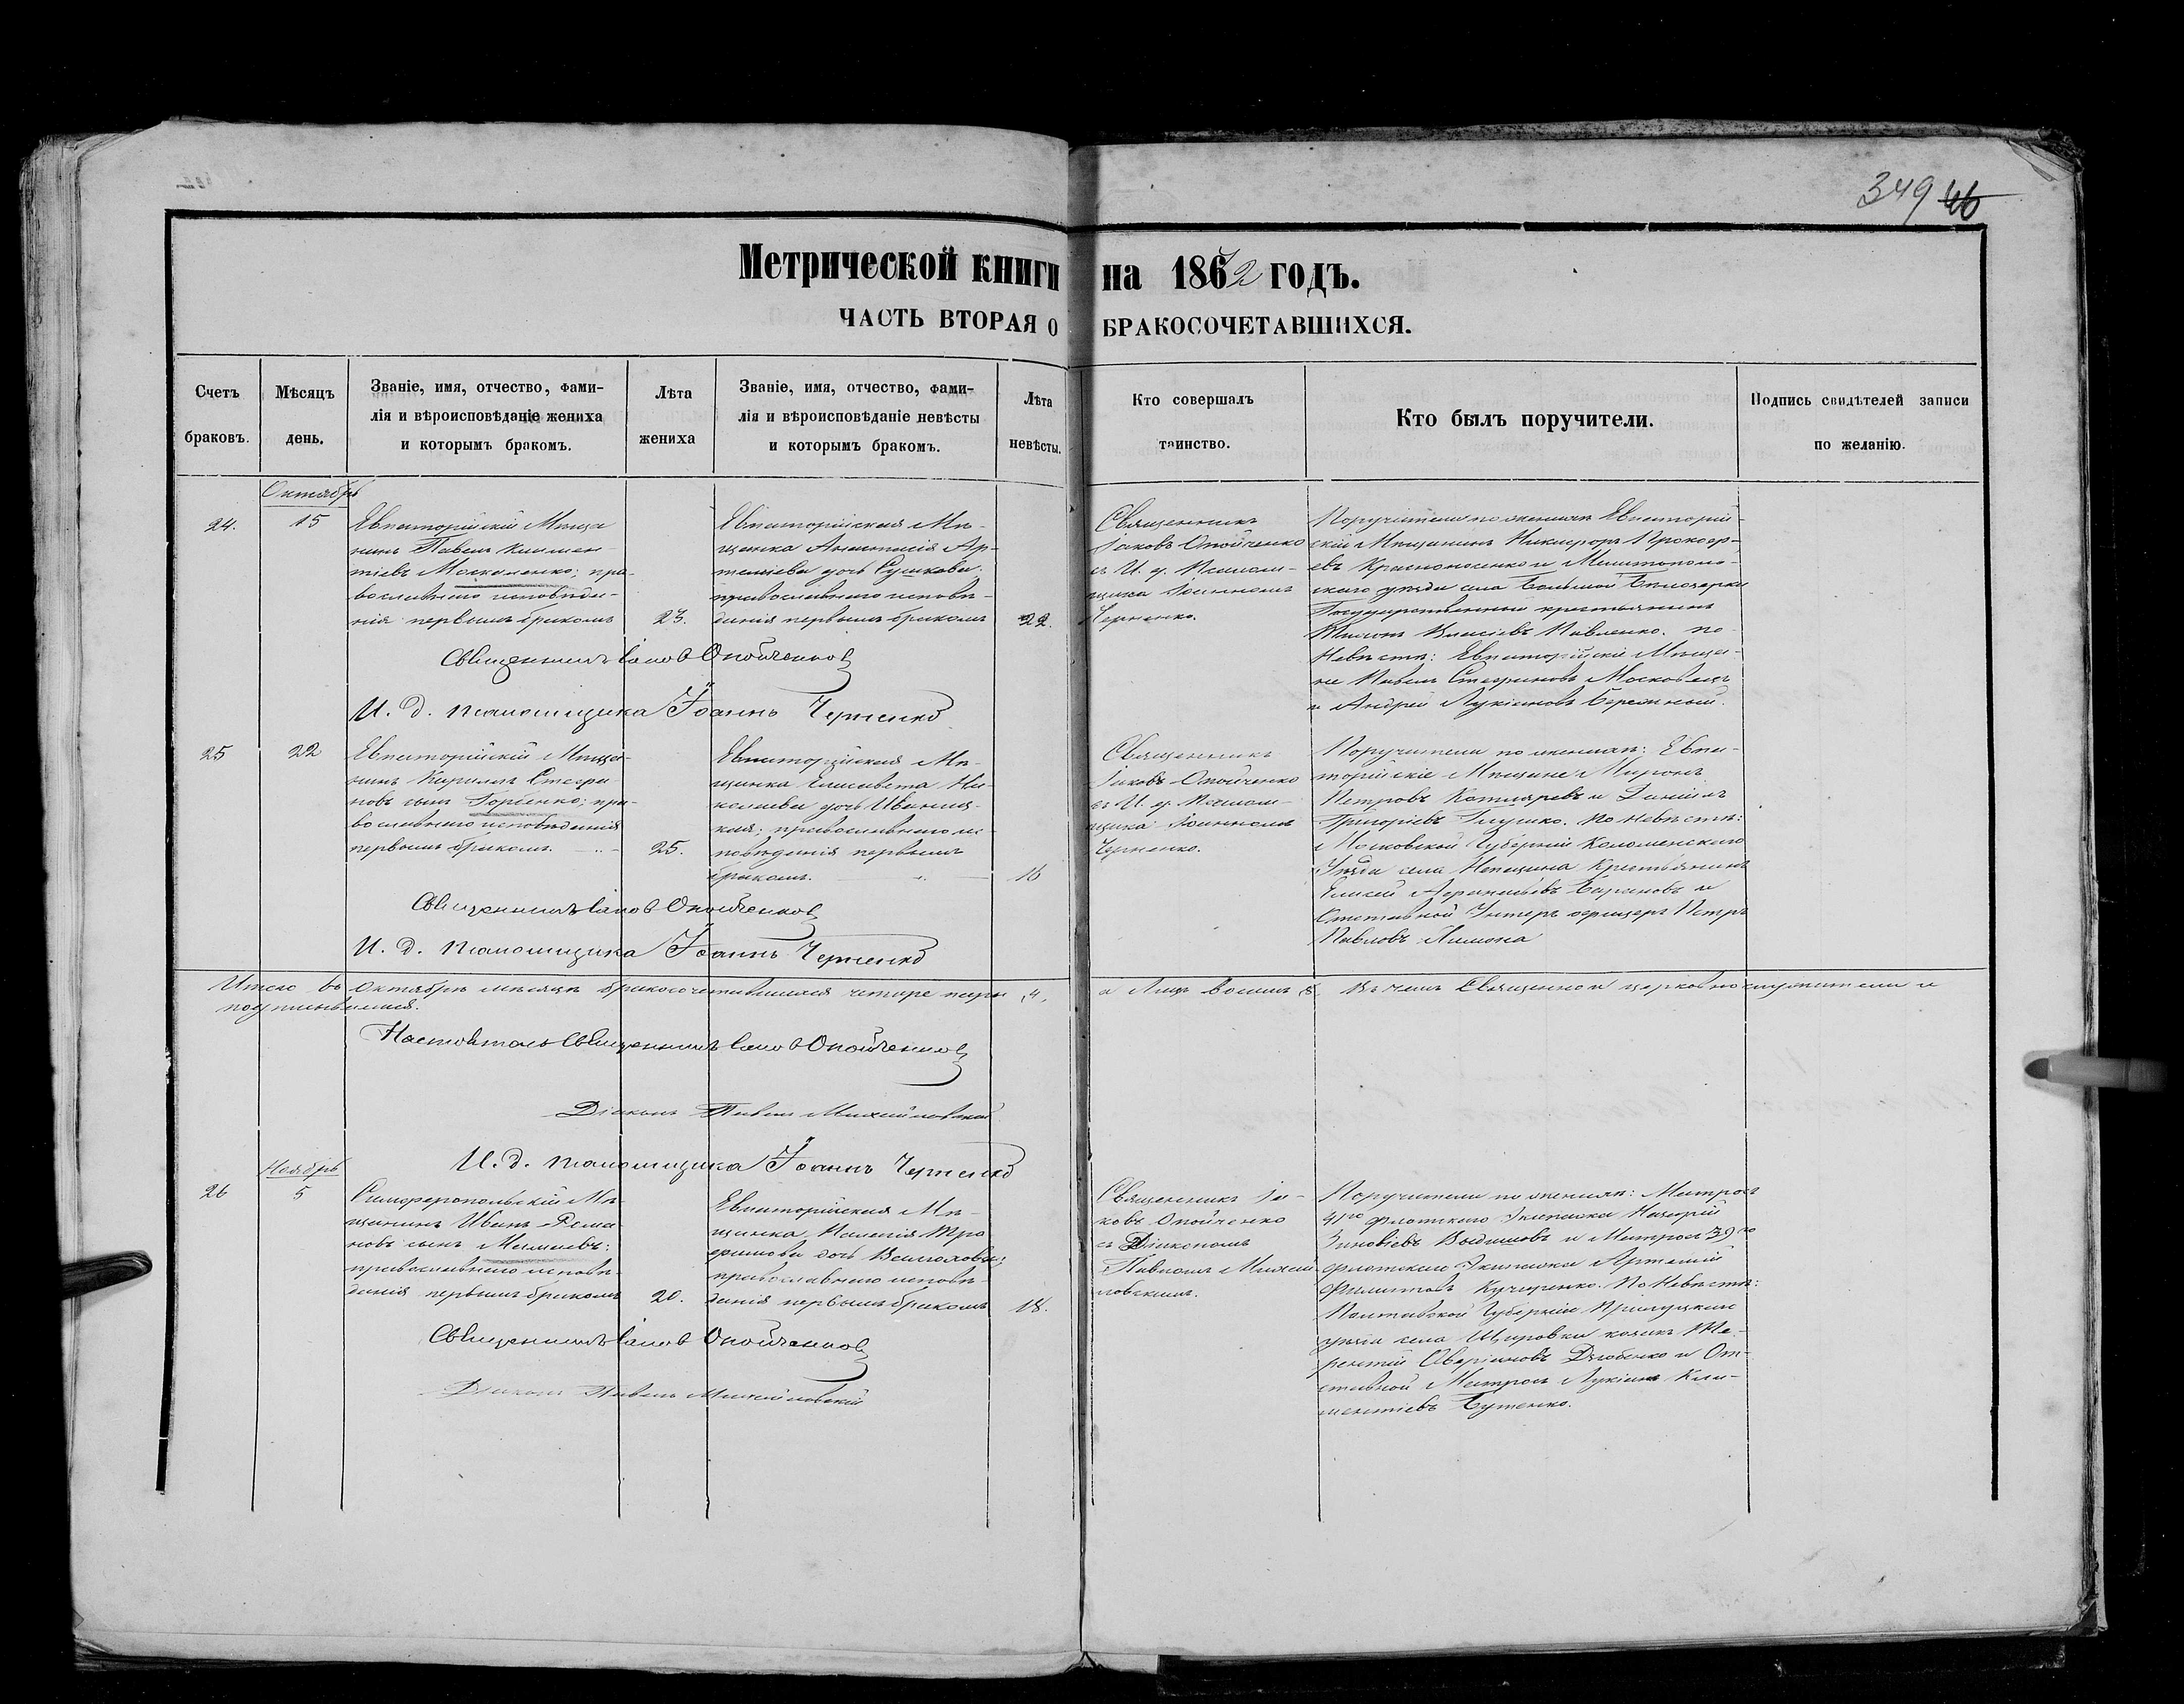 349 46
Метрической книги на 1862 годъ.
ЧАСТЬ ВТОРАЯ О БРАКОСОЧЕТАВШИХСЯ.
Счетъ браковъ.
Мѣсяцъ день.
Званіе, имя, отчество, фами-
лія и вѣроисповѣданіе жениха
и которымъ бракомъ.
Лѣта
жениха
Званіе, имя, отчество, фами-
лія и вѣроисповѣданіе невѣсты
и которымъ бракомъ.
Лѣта
невѣсты.
Кто совершалъ
таинство.
Кто былъ поручители.
Подпись свидѣтелей записи
по желанію.
Октябрь
24.
15
Евпаторійскій Мѣща
нинъ Павелъ Климен
тіевъ Москаленко; пра-
вославнаго исповѣда-
нія первымъ бракомъ
23.
Евпаторійская Мѣ-
щанка Анастасія Ар-
темьева дочь Сушкова;
православнаго исповѣ-
данія первымъ бракомъ
22.
Священникъ
Іаковъ Опойченко
съ И. д. Псалом-
щика Іоанномъ
Черненко.
Поручители по женихѣ Евпаторій-
скій Мѣщанинъ Никифоръ Прокофь-
евъ Красноносенко и Мелитополь-
скаго уѣзда села Большой Бѣлозерки
Государственный крестьянинъ
Власіевъ Павленко. по
Невѣстѣ: Евпаторійскіе Мѣща-
не Павелъ Стефановъ Московецъ
и Андрей Лукіановъ Бережный.
Священникъ Іаковъ Опойченков
И. д. псаломщика Іоаннъ Черненко
25
22
Евпаторійскій Мѣща-
нинъ Кириллъ Стефа
новъ сынъ Горбенко; пра-
вославнаго исповѣданія
первымъ бракомъ.
25.
Евпаторійская Мѣ-
щанка Елисавета Ни-
колаева дочь Иваниц-
кая; православнаго ис-
повѣданія первымъ
бракомъ.
16
Священникъ
Іаковъ Опойченко
съ И. д. Псалом-
щика Іоанномъ
Черненко.
Поручители по женихѣ: Евпа-
торійскіе Мѣщане Миронъ
Петровъ Котляревъ и Даніилъ
Григорьевъ Глушко. По невѣстѣ:
Московской Губерніи Коломенскаго
Уѣзда села Непецина Крестьянинъ
Елисей Афанасьевъ Барановъ и
Отставной Унтеръ офицеръ Петръ
Павловъ Лимона
Священникъ Іаковъ Опойченков
И. д. псаломщика Іоаннъ Черненко
Итого въ Октябрѣ мѣсяцѣ бракосочетавшихся четыре пары 4, а Лицъ восемь 8. Въ чемъ Священно и церковнослужители и
подписываемся.
Настоятель Священникъ Іаковъ Опойченков
Діаконъ Павелъ Михайловскій
И. д. псаломщика Іоаннъ Черненко
Ноябрь
26
5
Симферопольскій Мѣ-
щанинъ Иванъ Рома
новъ сынъ
православнаго исповѣ-
данія первымъ бракомъ
20.
Евпаторійская Мѣ-
щанка Тро
фимова дочь
православнаго исповѣ-
данія первымъ бракомъ
18.
Священникъ Іа-
ковъ Опойченко
съ Діакономъ
Павломъ Михай-
ловскимъ.
Поручители по женихѣ: Матросъ
41го флотскаго Экипажа Назарій
Зиновіевъ и Матросъ 39го
флотскаго Экипажа Артемій
Филиповъ Кучеренко. По Невѣстѣ:
Полтавской Губерніи Прилуцкаго
уѣзда села казакъ Те-
рентій Аверіановъ Дзюбенко и От-
ставной Матросъ Лукіанъ Кли-
ментіевъ Бутенко.
Священникъ Іаковъ Опойченков
Діаконъ Павелъ Михайловскій